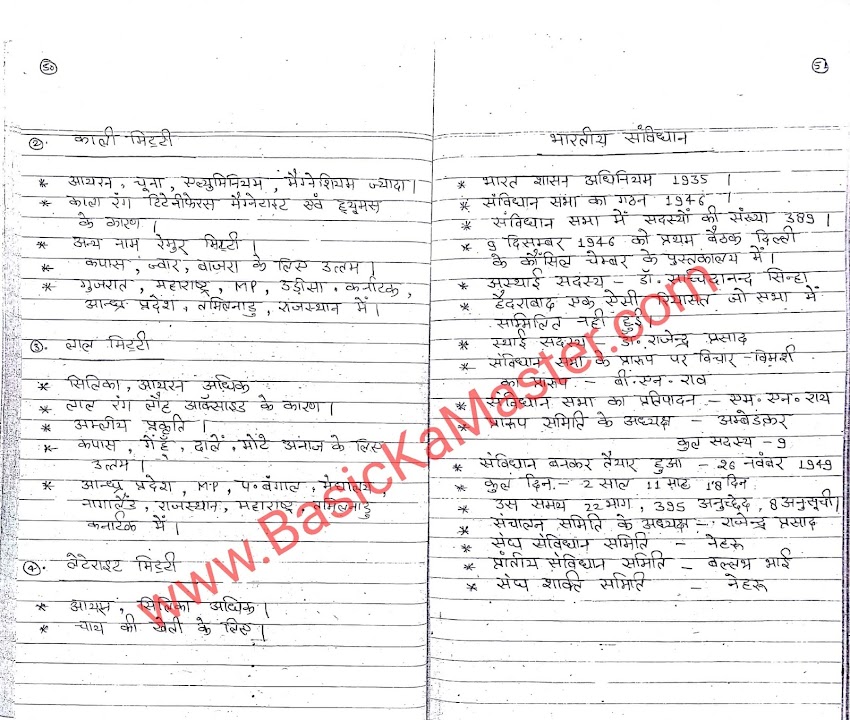 50
② काली मिट्टी
* आयरन, चूना, एल्युमिनियम, मैग्नेशियम ज्यादा।
* काला रंग टिटेनीफेरस मैग्नेटाइट एवं ह्यूमस
के कारण।
* अन्य नाम रेगुर मिट्टी।
* कपास, ज्वार, बाजरा के लिए उत्तम।
* गुजरात, महाराष्ट्र, MP, उड़ीसा, कर्नाटक,
आन्ध्र प्रदेश, तमिलनाडु, राजस्थान में।
③ लाल मिट्टी
* सिलिका, आयरन अधिक
* लाल रंग लौह ऑक्साइड के कारण।
* अम्लीय प्रकृति।
* कपास, गेहूँ, दालें, मोटे अनाज के लिए
उत्तम।
* आन्ध्र प्रदेश, MP, प. बंगाल, मेघालय,
नागालैंड, राजस्थान, महाराष्ट्र, तमिलनाडु
कर्नाटक में।
④ लेटेराइट मिट्टी
* आयरन, सिलिका अधिक।
* चाय की खेती के लिए।
51
भारतीय संविधान
* भारत शासन अधिनियम 1935।
* संविधान सभा का गठन 1946।
* संविधान सभा में सदस्यों की संख्या 389।
* 9 दिसम्बर 1946 को प्रथम बैठक दिल्ली
के कौंसिल चेम्बर के पुस्तकालय में।
* अस्थाई सदस्य - डॉ. सच्चिदानन्द सिन्हा
* हैदराबाद एक ऐसी रियासत जो सभा में
सम्मिलित नहीं हुई।
* स्थाई सदस्य - डॉ. राजेन्द्र प्रसाद
* संविधान सभा के प्रारूप पर विचार-विमर्श
का प्रारूप - बी. एन. राव
* संविधान सभा का प्रतिपादन - एम. एन. राय
* प्रारूप समिति के अध्यक्ष - अम्बेडकर
कुल सदस्य - 9
* संविधान बनकर तैयार हुआ - 26 नवंबर 1949
* कुल दिन - 2 साल 11 माह 18 दिन
* उस समय 22 भाग, 395 अनुच्छेद, 8 अनुसूची।
* संचालन समिति के अध्यक्ष - राजेन्द्र प्रसाद
* संघ संविधान समिति - नेहरू
* प्रांतीय संविधान समिति - बल्लभ भाई
* संघ शक्ति समिति - नेहरू
www.BasicKaMaster.com